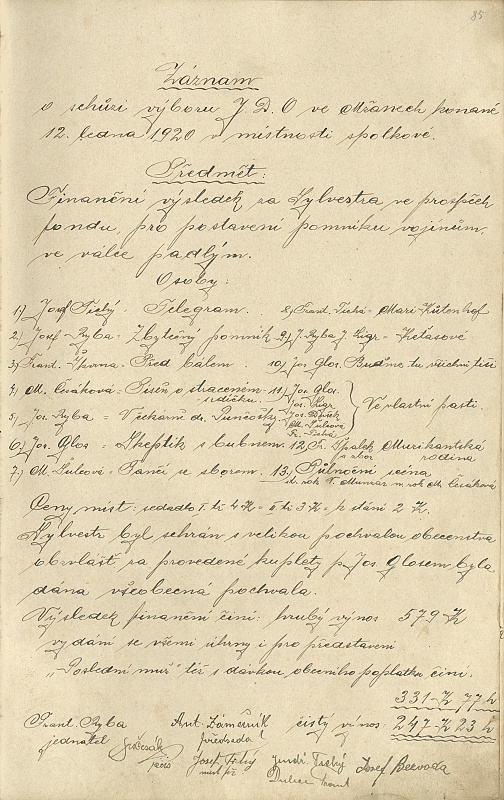 85
Záznam
o schůzi výboru J. D. O ve Mžanech konané
12. ledna 1920 v místnosti spolkové.
Předmět:
Finanční výsledek za Sylvestra ve prospěch
fondu, pro postavení pomníku vojínům,
ve válce padlým.
Osoby:
1) Josef Tichý - Telegram. 8) Frant. Tichá = Mari Kůtenhof
2) Josef Ryba = Zbytečný pomník 9) J. Ryba J. Ligr = Keťasové
3) Frant. Před bálem. 10) Jos. Glos. Buďme tu všichni tiší
4) M. Cesáková = Píseň o ztraceném srdíčku. 11) Jos. Glos.
Jos. Ligr
5) Jos. Ryba = Večkářů dr. Punčošky
M. Lulcová
Fr. Tichá
Ve vlastní pasti
6) Jos. Glos = Skeptik s bubnem 12) Fr. Špalek a sbor Muzikantská rodina
7) M. Lulcová = Tančí se sborem. 13) Půlnoční scéna
st. rok F. n. rok M. Cesáková
Ceny míst: sedadlo I. tř. 4 K = II tř 3 K = k stání 2 K.
Sylvestr byl sehrán s velikou pochvalou obecenstva
obzvlášť za provedené kuplety p. Jos. Glosem byla
dána všeobecná pochvala.
Výsledek finanční činí: hrubý výnos 579 K
vydání se všemi úhrny i pro představení
„Poslední muž" též s dávkou obecního poplatku činí.
331 K 77 h
čistý výnos: 247 K 23 h
Frant. Ryba
jednatel
Ant. Zámečník
předseda
Josef Tichý
Jindř. Tichý
Josef